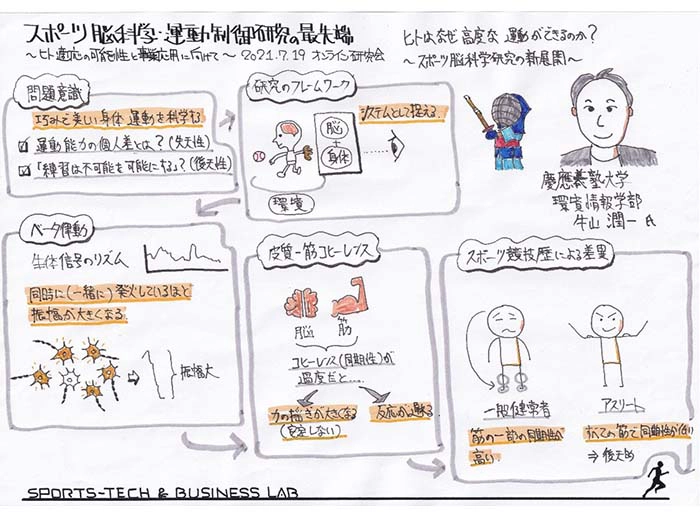 スポーツ脳科学・運動制御研究の最先端
〜ヒト適応の可能性と事業応用に向けて〜 2021.7.19 オンライン研究会
ヒトはなぜ高度な運動ができるのか？
〜スポーツ脳科学研究の新展開〜
慶應義塾大学
環境情報学部
牛山 潤一 氏
問題意識
巧みで美しい身体運動を科学する
運動能力の個人差とは？(先天性)
「練習は不可能を可能にする」？(後天性)
研究のフレームワーク
システムとして捉える
脳
+
身体
環境
ベータ律動
生体信号のリズム
同時に(一緒に)発火しているほど
振幅が大きくなる
振幅大
皮質ー筋コヒーレンス
脳 筋
コヒーレンス(同期性)が
過度だと....
力の揺らぎが大きくなる
(安定しない)
反応が遅れる
スポーツ競技歴による差異
一般健常者
筋の一部の同期性が
高い
アスリート
すべての筋で同期性が低い
⇒ 後天的
SPORTS-TECH & BUSINESS LAB